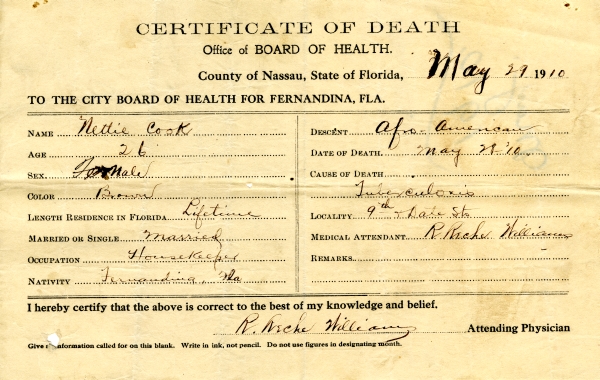 CERTIFICATE OF DEATH
Office of BOARD OF HEALTH.
County of Nassau, State of Florida, May 29 1910
TO THE CITY BOARD OF HEALTH FOR FERNANDINA, FLA.
NAME Nettie Cook
AGE 26
SEX. Female
COLOR Brown
LENGTH RESIDENCE IN FLORIDA Lifetime
MARRIED OR SINGLE Married
OCCUPATION Housekeeper
NATIVITY Fernandina, Fla
DESCENT. Afro-American
DATE OF DEATH. May 29 '10
CAUSE OF DEATH
Tuberculosis
LOCALITY 9th & Dade St
MEDICAL ATTENDANT R. Resche Williams
REMARKS
I hereby certify that the above is correct to the best of my knowledge and belief.
R. Resche Williams Attending Physician
Give information called for on this blank. Write in ink, not pencil. Do not use figures in designating month.